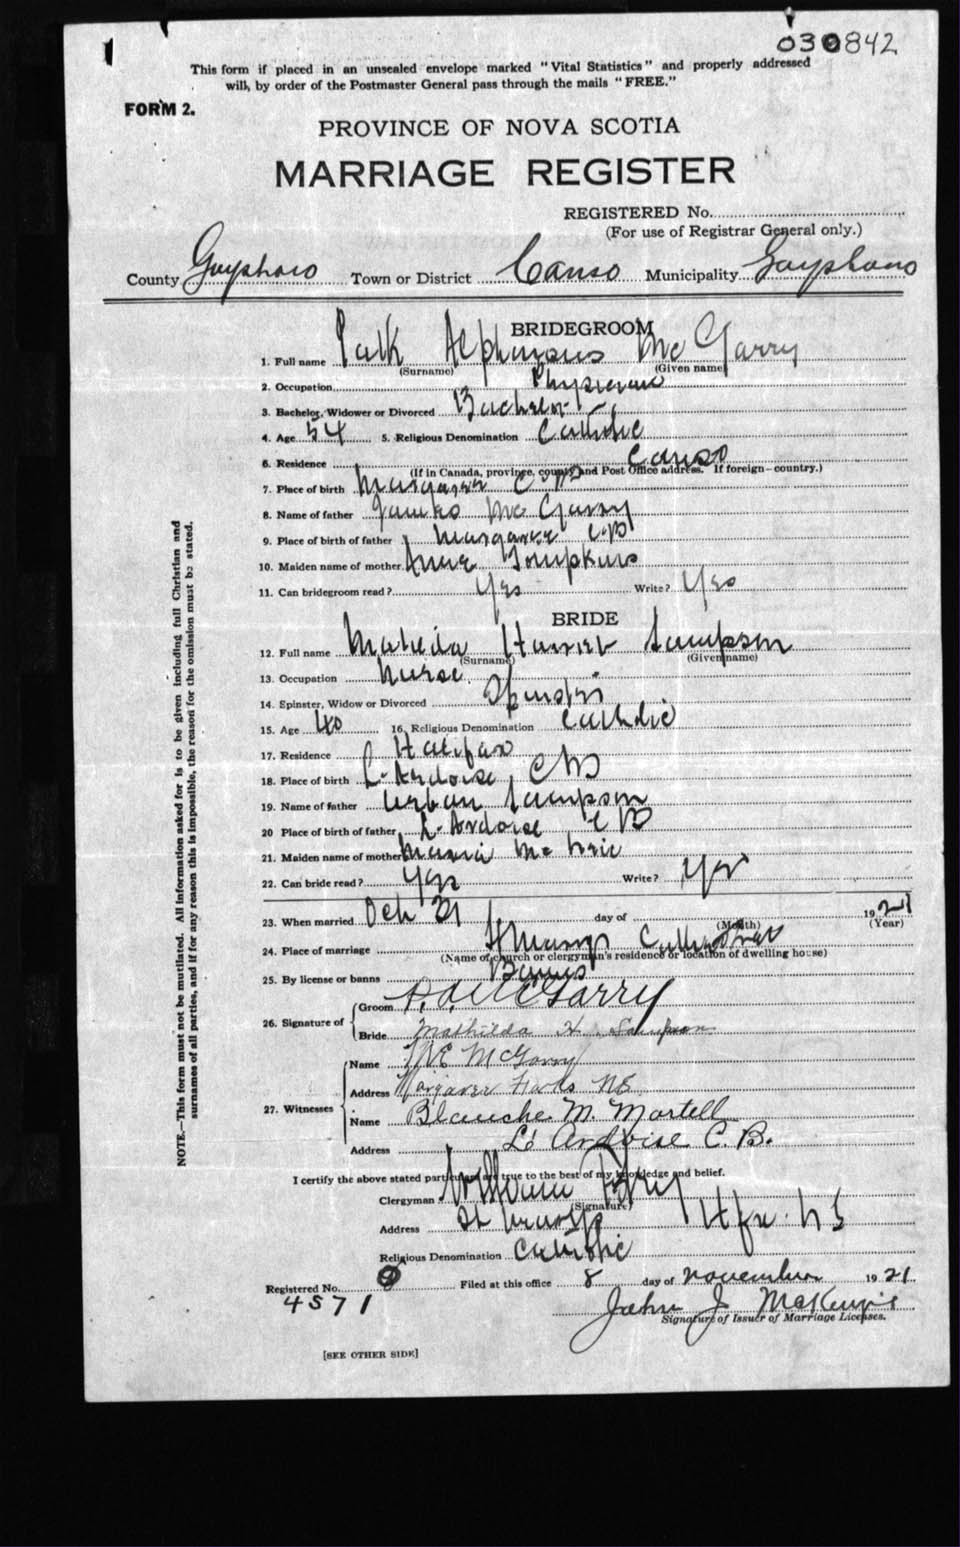 030842
This form if placed in an unsealed envelope marked "Vital Statistics" and properly addressed
will, by order of the Postmaster General pass through the mails "FREE."
FORM 2.
PROVINCE OF NOVA SCOTIA
MARRIAGE REGISTER
REGISTERED No.
(For use of Registrar General only.)
County Guysboro Town or District Canso Municipality Guysboro
BRIDEGROOM
1. Full name Patk Alphonsus McGarry
(Surname) (Given name)
2. Occupation Physician
3. Bachelor, Widower or Divorced Bachelor
4. Age 54 5. Religious Denomination Catholic
6. Residence Canso
(If in Canada, province, county and Post Office address. If foreign—country.)
7. Place of birth Margaree C B
8. Name of father James McGarry
9. Place of birth of father Margaree CB
10. Maiden name of mother Anne Tompkins
11. Can bridegroom read? Yes Write? Yes
BRIDE
12. Full name Matilda Harriet Sampson
(Surname) (Given name)
13. Occupation Nurse
14. Spinster, Widow or Divorced Spinster
15. Age 40 16. Religious Denomination Catholic
17. Residence Halifax
18. Place of birth L-Ardoise, CB
19. Name of father Urban Sampson
20 Place of birth of father L-Ardoise CB
21. Maiden name of mother Maria
22. Can bride read? Yes Write? Yes
23. When married Oct 31 day of 1921
(Month) (Year)
24. Place of marriage St Marys Cathedral
(Name of church or clergyman's residence or location of dwelling house)
25. By license or banns Banns
26. Signature of Groom P. A. McGarry
Bride Mathilda H. Sampson
27. Witnesses Name McGarry
Address Margaree Forks NS
Name Blanche M. Martell
Address L'Ardoise C. B.
I certify the above stated particulars are true to the best of my knowledge and belief.
Clergyman William
(Signature)
Address St Marys Hfx. N S
Religious Denomination Catholic
Registered No. 4571 Filed at this office 8 day of November 1921
John J McKenzie
Signature of Issuer of Marriage Licenses.
[SEE OTHER SIDE]
NOTE.—This form must not be mutilated. All information asked for is to be given including full Christian and
surnames of all parties, and if for any reason this is impossible, the reason for the omission must be stated.